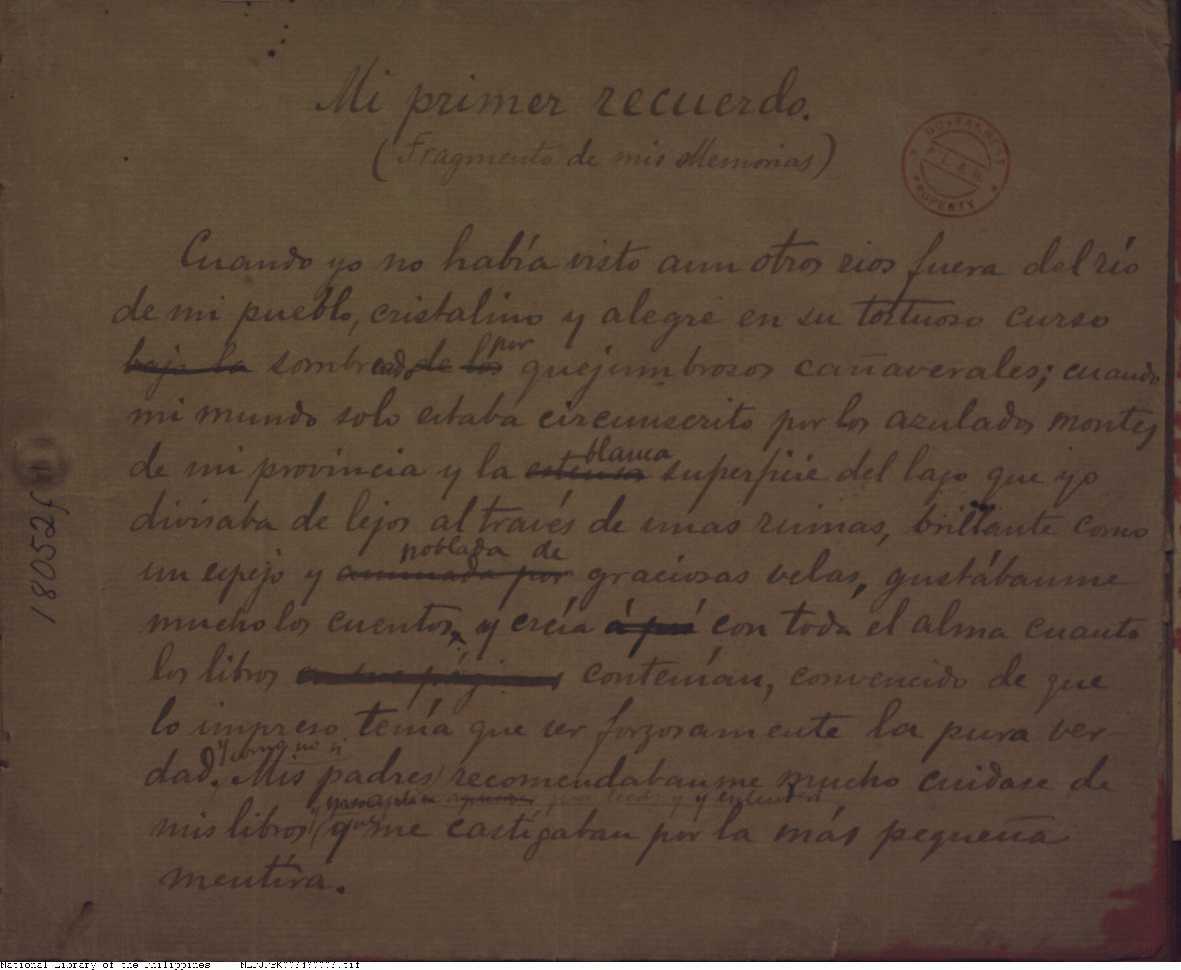 Mi primer recuerdo.
(Fragmento de mis Memorias)
Cuando yo no había visto aun otros rios fuera del río
de mi pueblo, cristalino y alegre en su tortuoso curso
bajo la sombreado de los por quejumbrosos cañaverales; cuando
mi mundo solo estaba circunscrito por los azulados montes
blanca
de mi provincia y la estensa superficie del lago que yo
divisaba de lejos al través de unas ruinas, brillante como
poblada de
un espejo y animada por graciosas velas, gustábanme
mucho los cuentos, y creía á pié con toda el alma cuanto
los libros contenían, convencido de que
lo impreso tenía que ser forzosamente la pura ver-
y como no si
dad. Mis padres recomendabanme mucho cuidase de
y entender
mis libros, que me castigaban por la más pequeña
mentira.
18052f1
PROPERTY
National Library of the Philippines